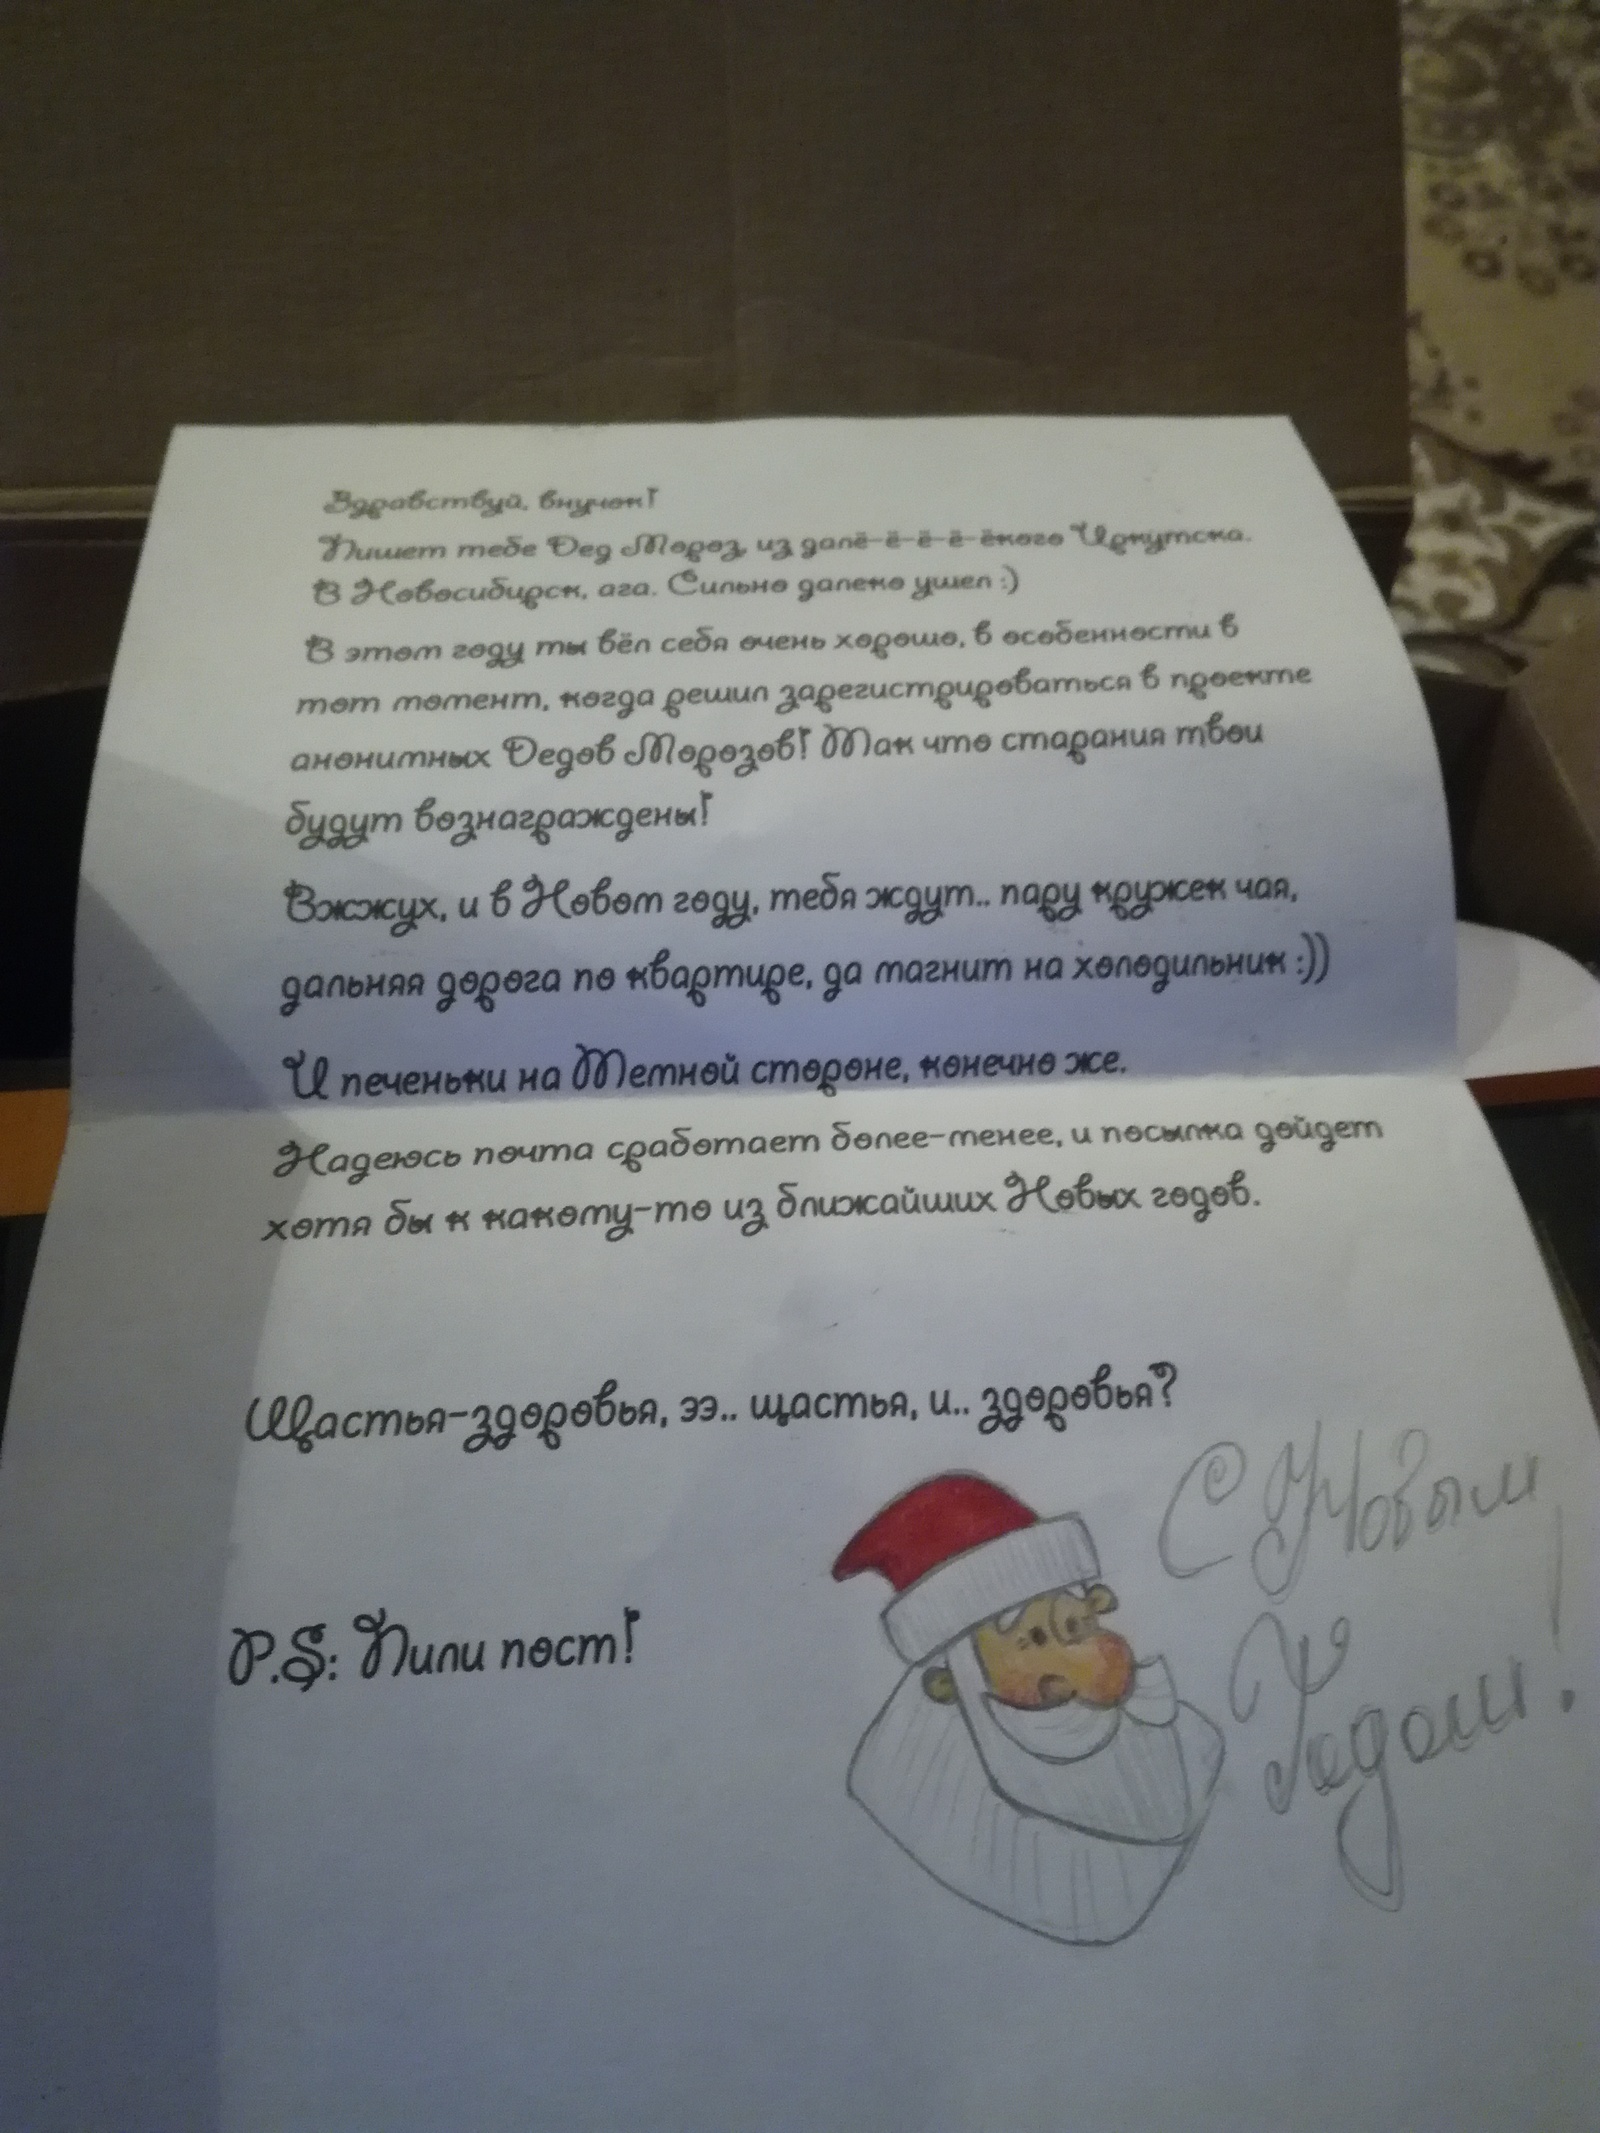 Здравствуй, внучок!
Пишет тебе Дед Мороз, из далё-ё-ё-ё-ёкого Иркутска.
В Новосибирск, ага. Сильно далеко ушел :)
В этом году ты вёл себя очень хорошо, в особенности в
тот момент, когда решил зарегистрироваться в проекте
анонимных Дедов Морозов! Так что старания твои
будут вознаграждены!
Вжжух, и в Новом году, тебя ждут.. пару кружек чая,
дальняя дорога по квартире, да магнит на холодильник :))
И печеньки на Темной стороне, конечно же.
Надеюсь почта сработает более-менее, и посылка дойдет
хотя бы к какому-то из ближайших Новых годов.
Щастья-здоровья, ээ.. щастья, и.. здоровья?
С Новым
Годом!
P.S: Пили пост!